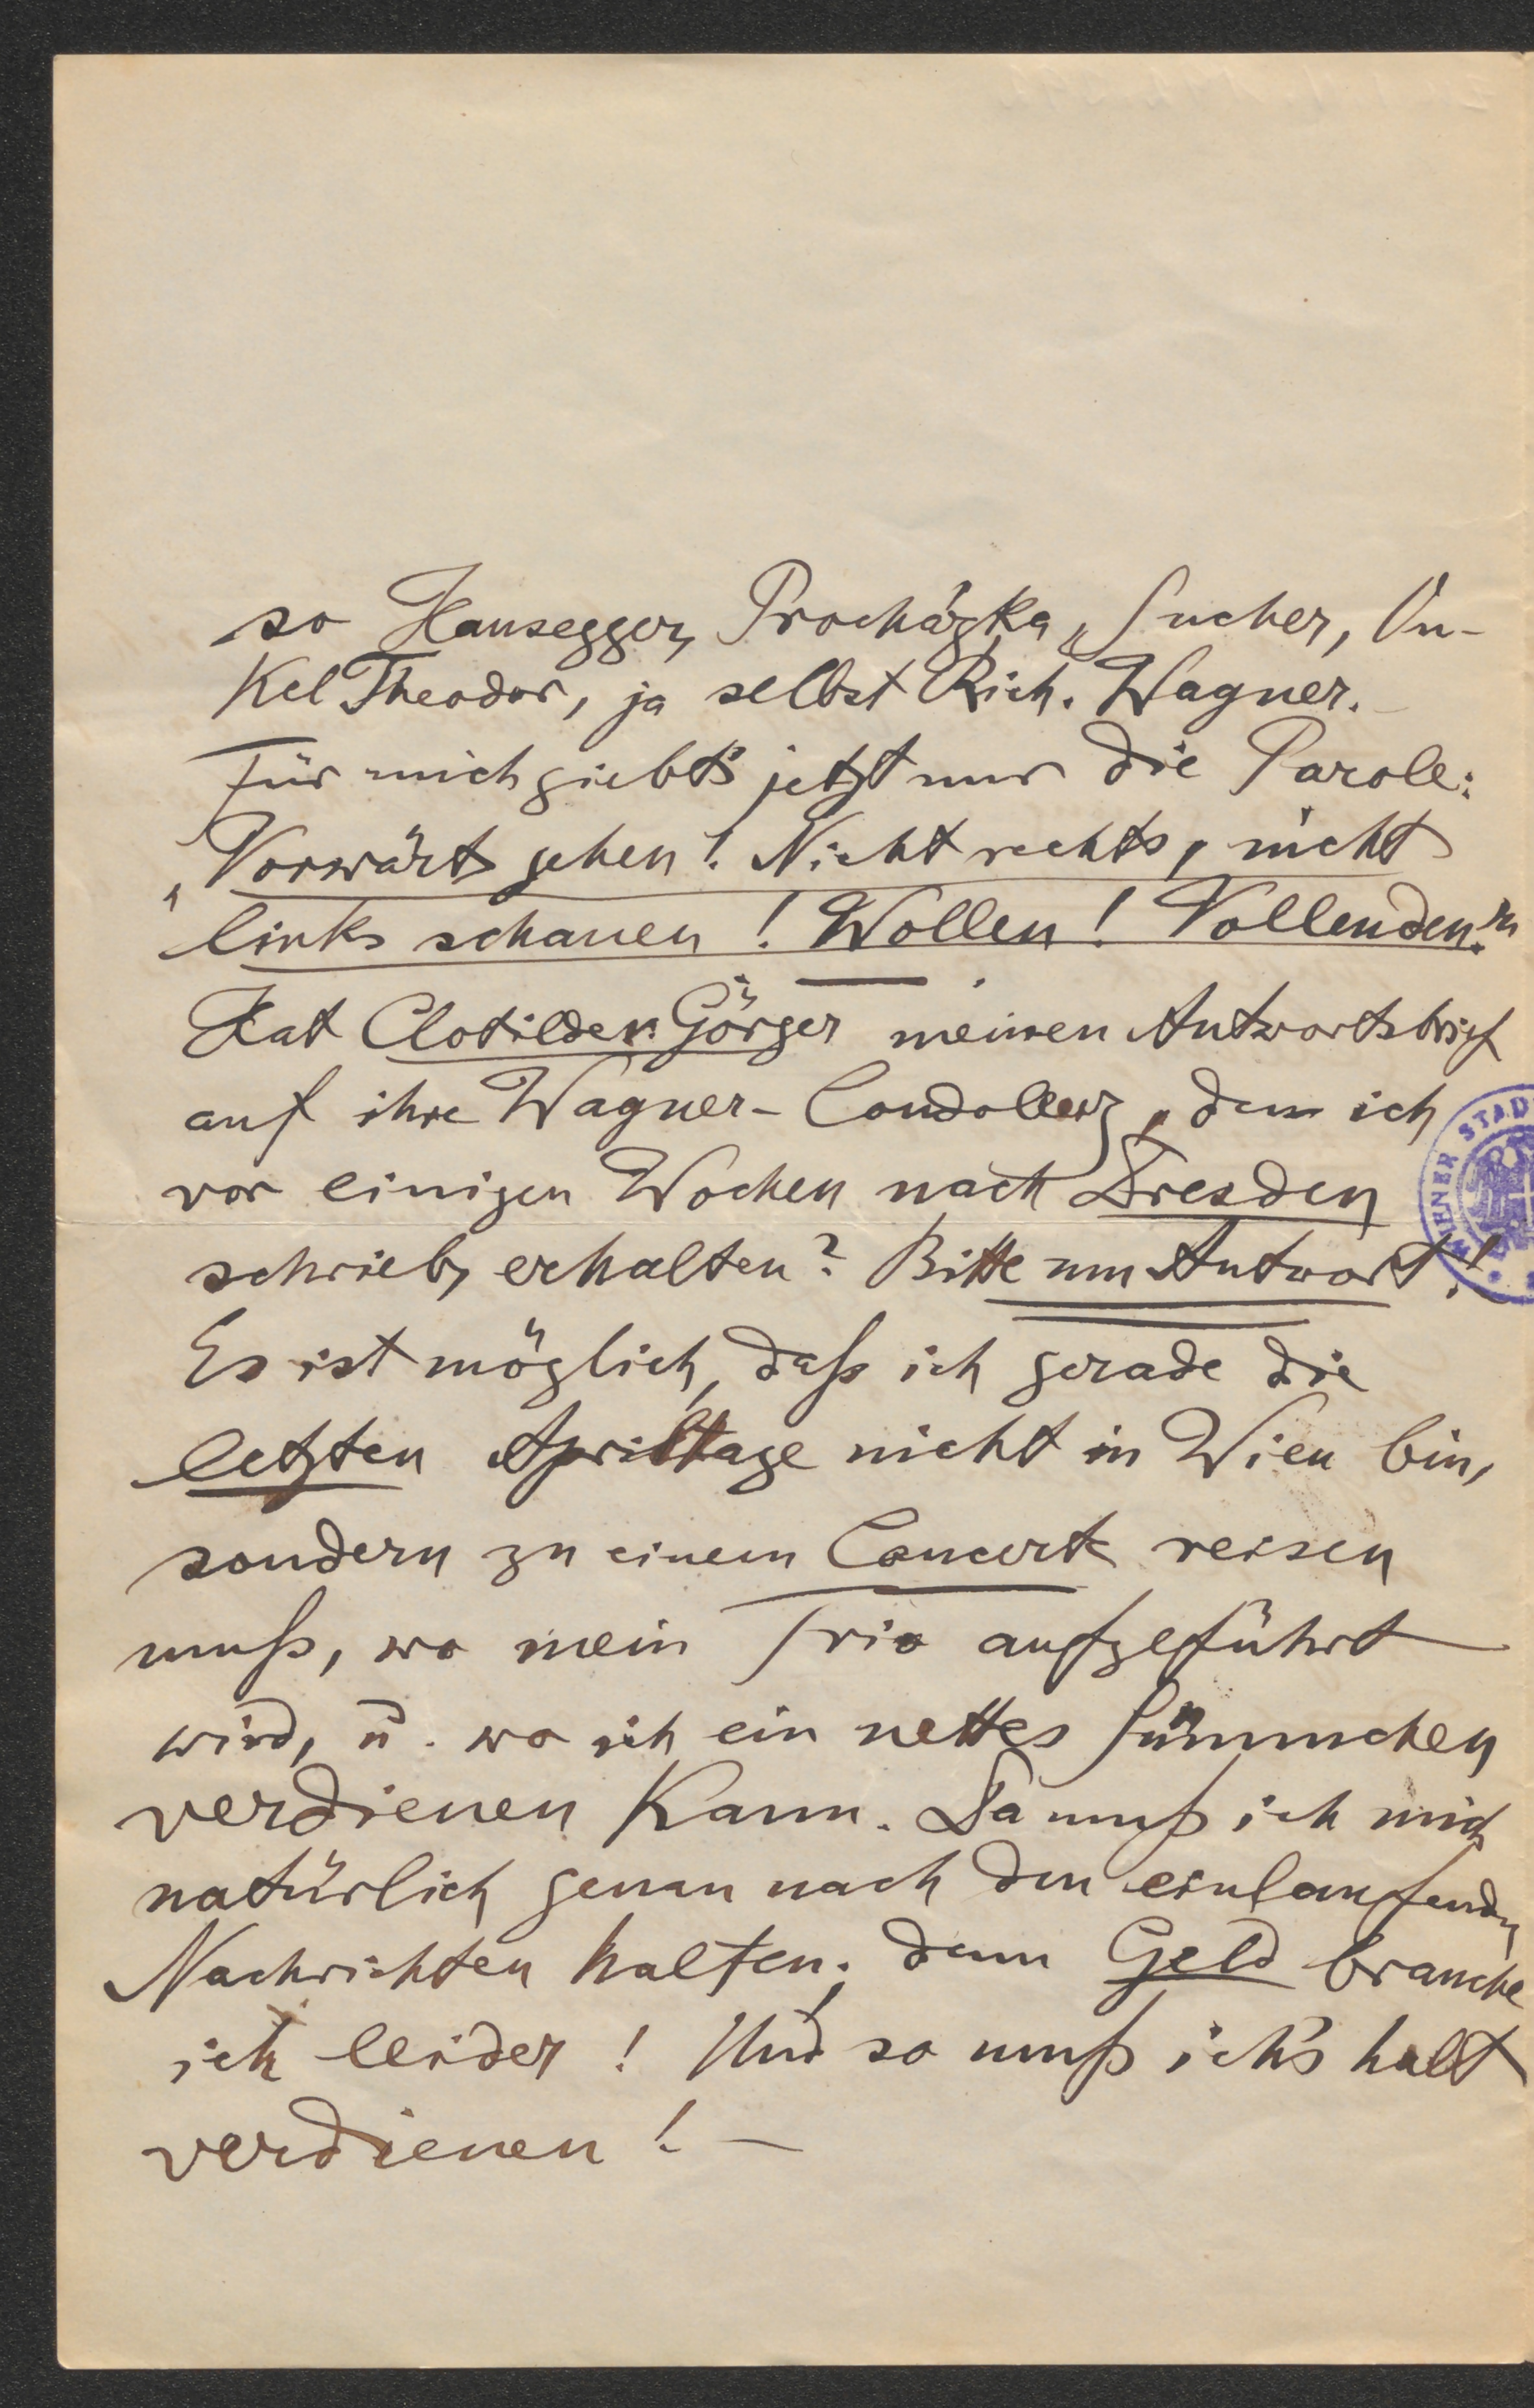 so Hausegger, Procházka, Sucher, On-
kel Theodor, ja selbst Rich. Wagner.
Für mich giebt's jetzt nur die Parole:
„Vorwärts gehen! Nicht rechts, nicht
links schauen! Wollen! Vollenden!"
Hat Clotilde v. Görger meinen Antwortsbrief
auf ihre Wagner-Condolenz, den ich
vor einigen Wochen nach Dresden
schrieb, erhalten? Bitte um Antwort!
Es ist möglich, daß ich gerade die
letzten Apriltage nicht in Wien bin,
sondern zu einem Concert reisen
muß, wo mein Trio aufgeführt
wird, u. wo ich ein nettes Sümmchen
verdienen kann. Da muß ich mich
natürlich genau nach den einlaufenden
Nachrichten halten; denn Geld brauche
ich leider! Und so muß ich's halt
verdienen! —
WIENER STAD